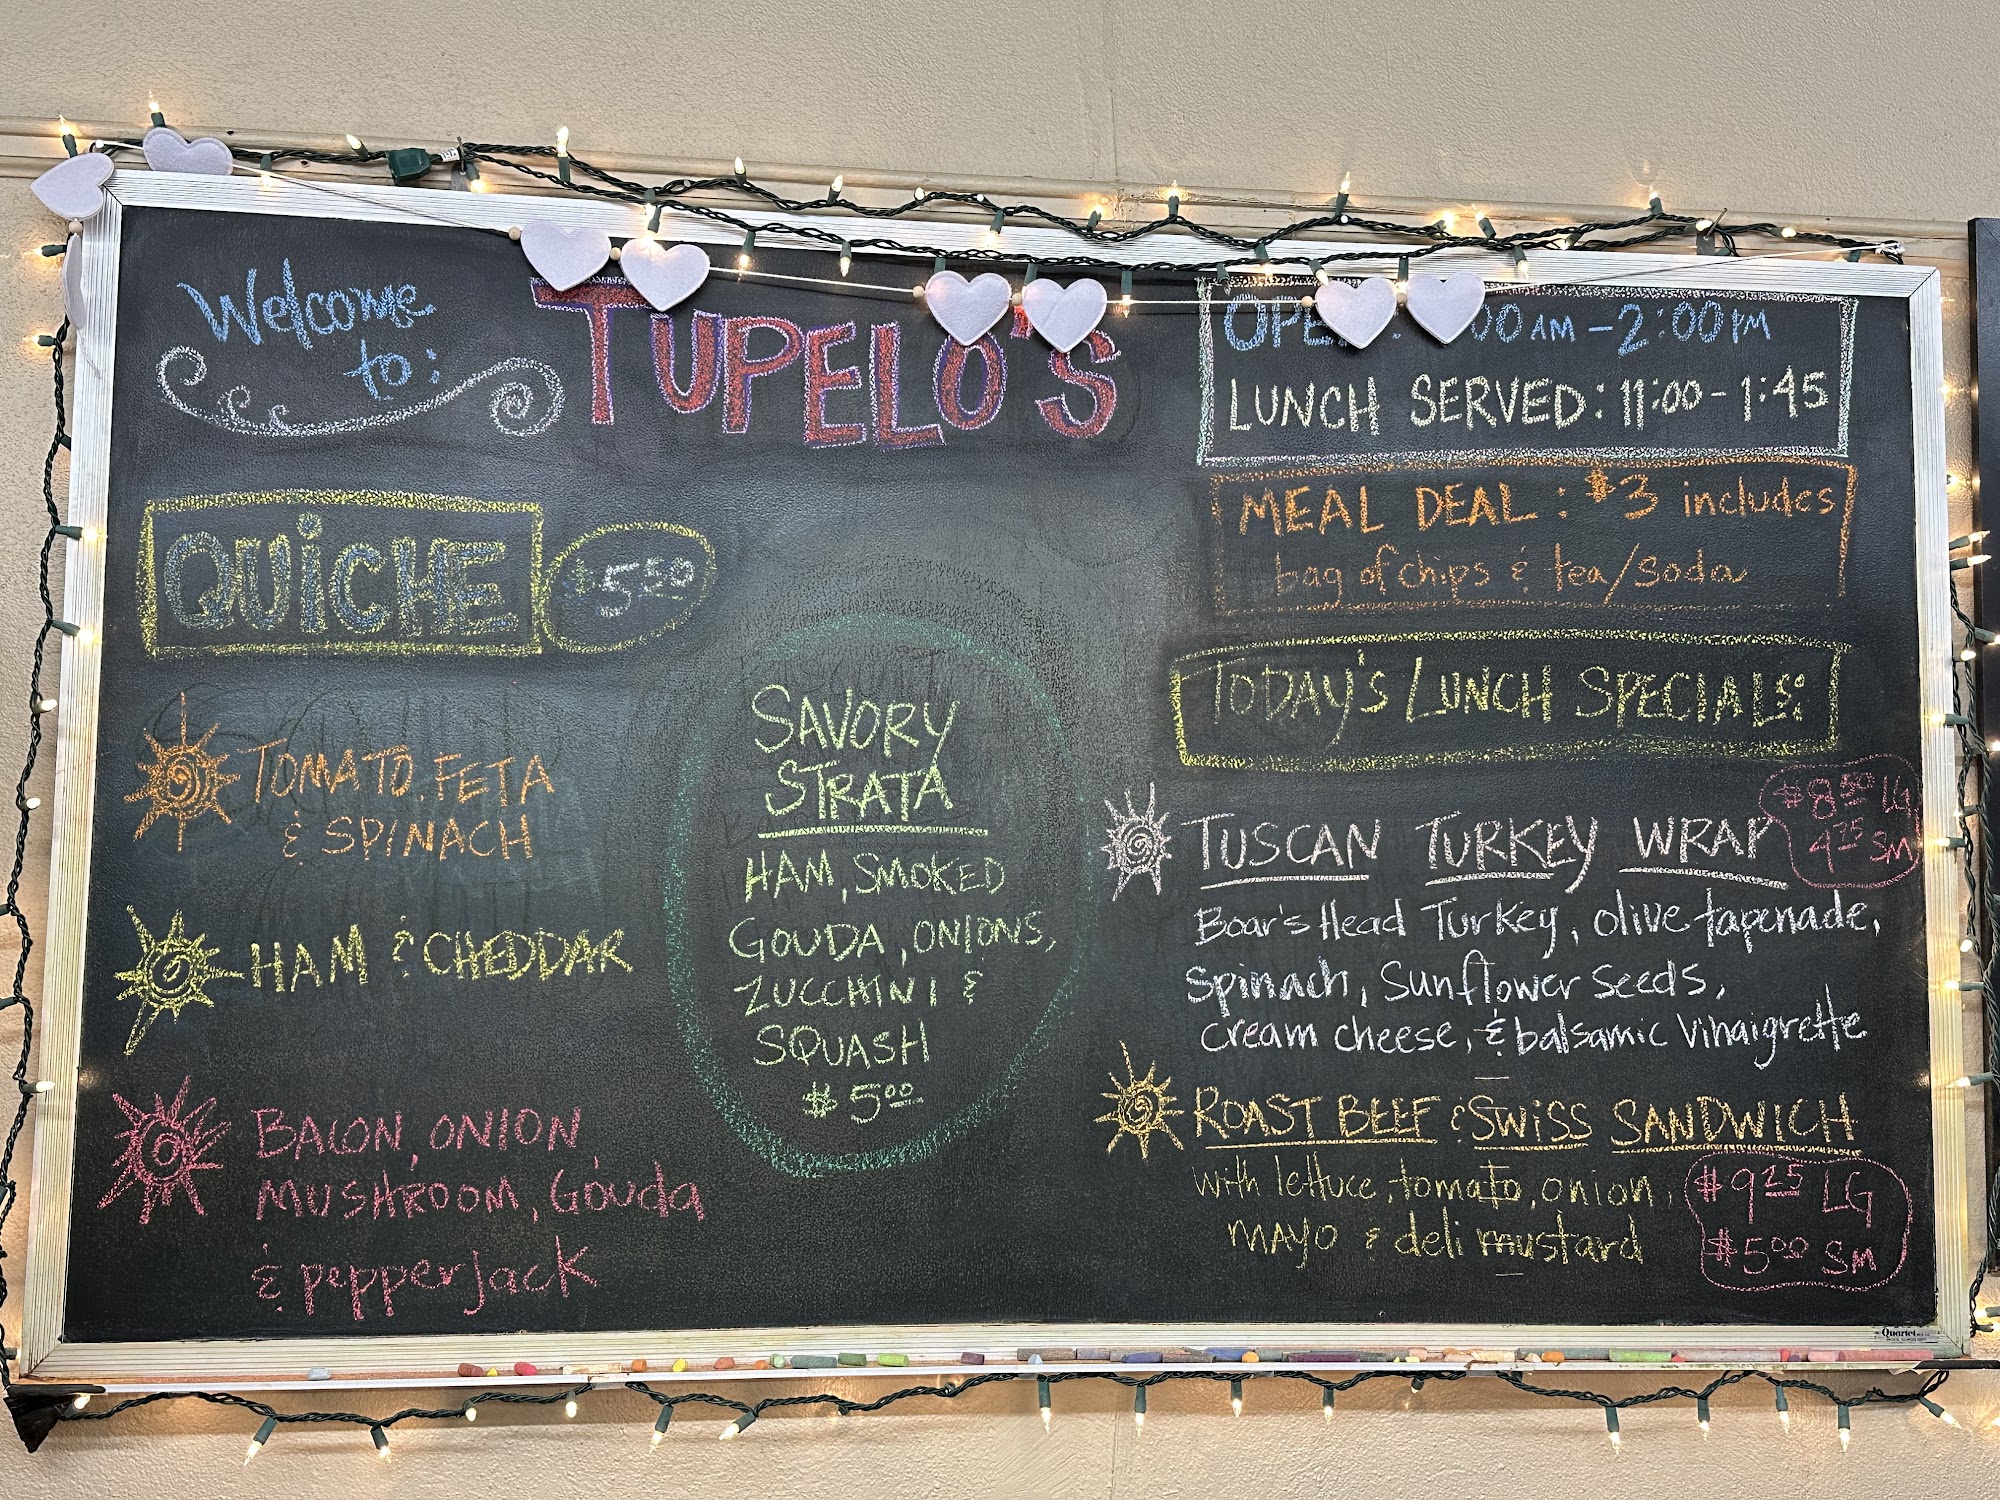 Welcome
to:
TUPELO'S
OPEN: 00AM - 2:00PM
LUNCH SERVED: 11:00 - 1:45
MEAL DEAL: $3 includes
bag of chips & tea/soda
QUICHE $5.50
TOMATO, FETA
& SPINACH
HAM & CHEDDAR
BACON, ONION
MUSHROOM, Gouda
& pepperjack
SAVORY
STRATA
HAM, SMOKED
GOUDA, ONIONS,
ZUCCHINI &
SQUASH
$5.00
TODAY'S LUNCH SPECIALS:
$8.50 LG
4.25 SM
TUSCAN TURKEY WRAP
Boar's Head Turkey, olive tapenade,
spinach, sunflower seeds,
cream cheese, & balsamic vinaigrette
ROAST BEEF & SWISS SANDWICH
with lettuce, tomato, onion,
MAYO & deli mustard
$9.25 LG
$5.00 SM
Quartet